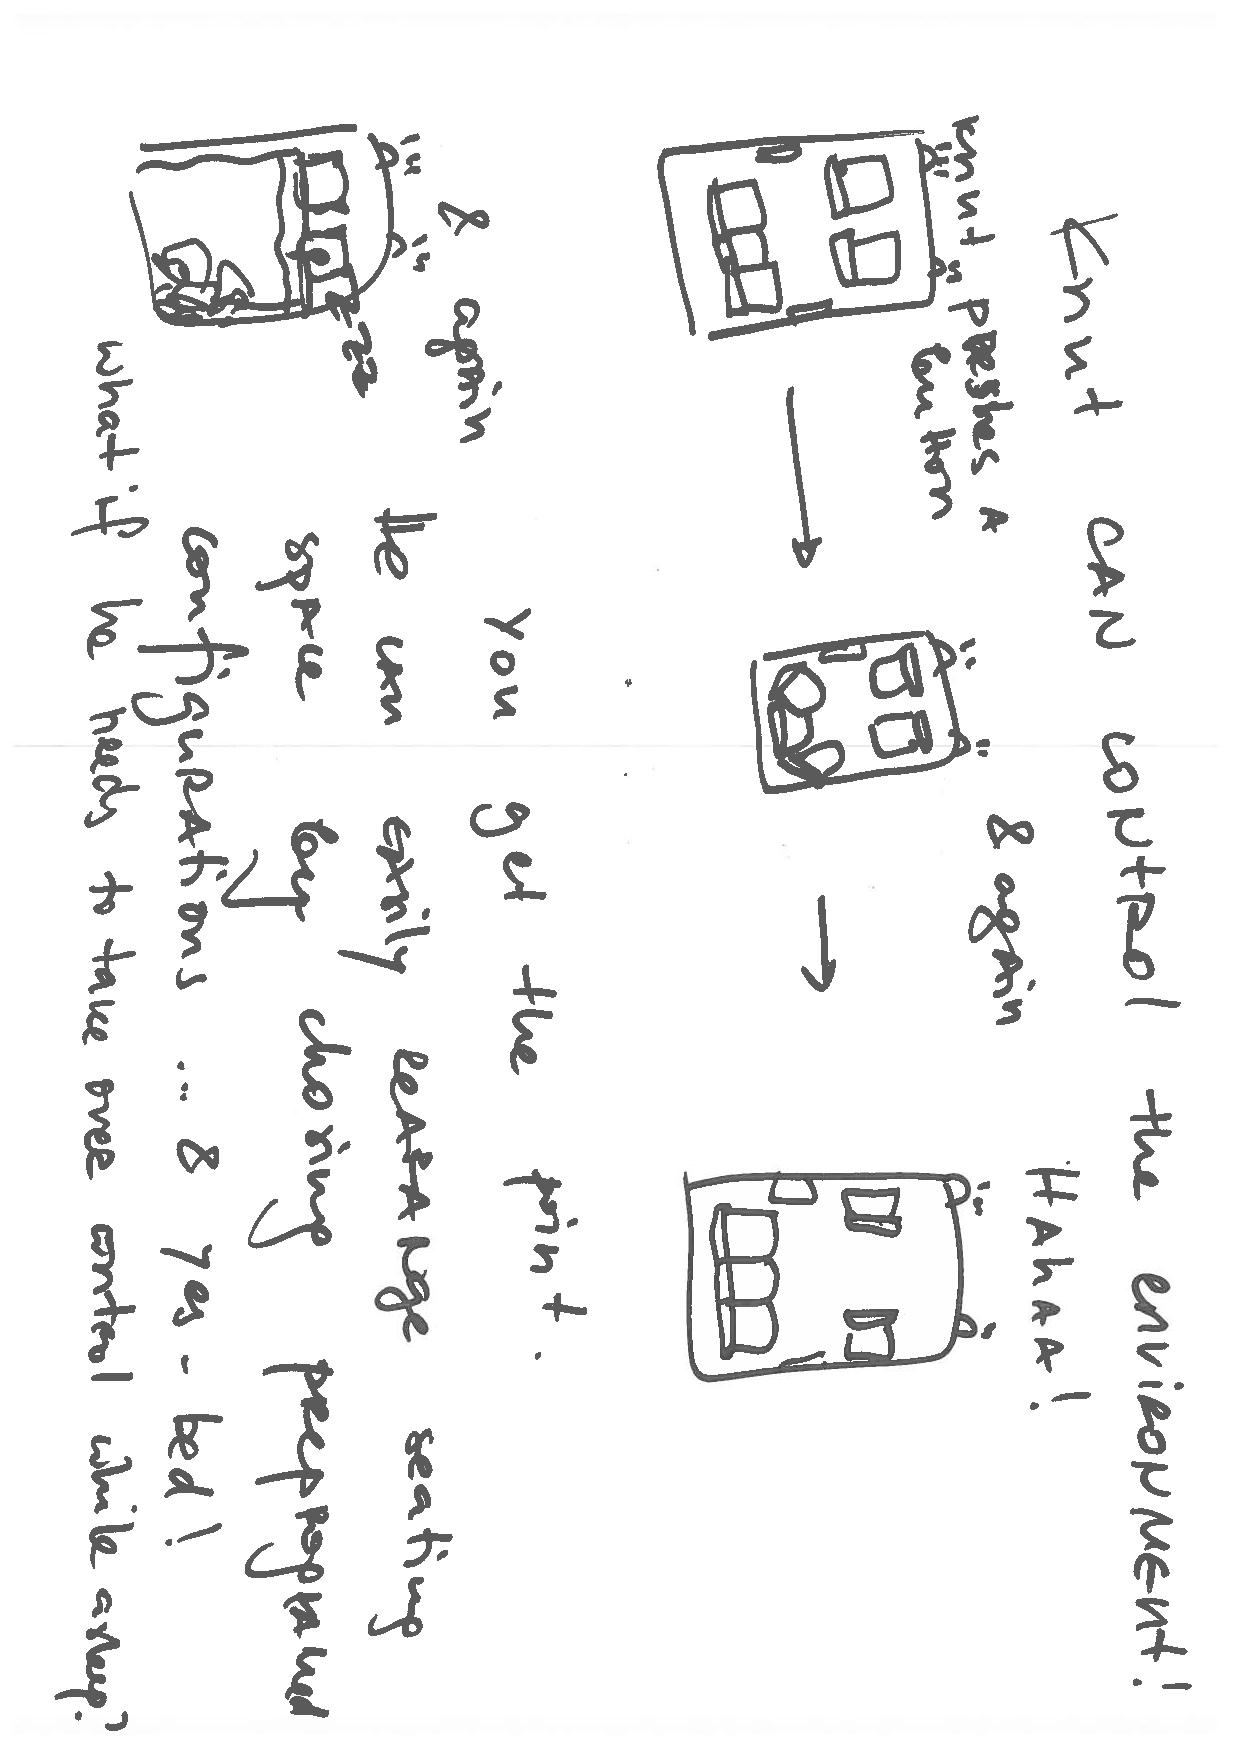 Knut CAN CONTROL the ENVIRONMENT!
Knut presses A
button
& again
HAhAA!
& again
zzz
You get the point.
He can easily reARANge seating
space by chosing preprogramed
configurations ... & yes - bed!
what if he needs to take over control while asleep?